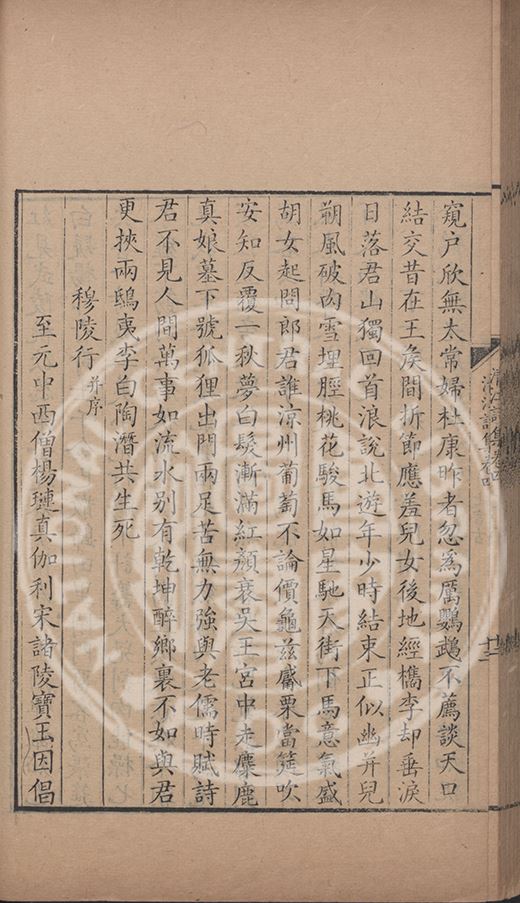 窺户欣無太常婦杜康昨者忽爲厲鸚鵡不薦談天口
結交昔在王矦間折節應羞兒女後地經檇李却垂淚
日落君山獨回首浪說北遊年少時結束正似幽并兒
朔風破肉雪埋脛桃花駿馬如星馳天街下馬意氣盛
胡女起問郎君誰涼州葡萄不論價龜兹觱栗當筵吹
安知反覆一秋夢白髮漸滿紅顏衰吳王宮中走麋鹿
真娘墓下號狐狸出門兩足苦無力強與老儒時賦詩
君不見人間萬事如流水别有乾坤醉鄉裏不如與君
更挾兩鴟夷李白陶潛共生死
穆陵行 并序
至元中西僧楊璉真伽利宋諸陵寶玉因倡
十二